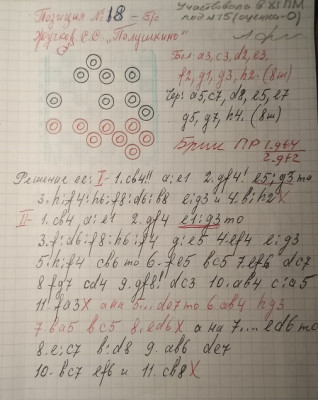 Позиция № 18 – б/о
Участвовала в XI ПМ
под №15 (оценка-0)
С.С. "Полушкино"
Бел: а3, с3, d2, e3,
f2, g1, g3, h2. (8ш)
Чер: d5, c7, d8, e5, e7
g5, g7, h4. (8ш)
ПР 1.gf4
2.gf2
Решение ее: I- 1.cb4!! a:e1 2.gf4! e5:g3 то
3.h:f4:h6:f8:d6:b8 e:g3 и 4.b:h2X
II- 1.cb4 a:e1 2.gf4 e1:g3 то
3.f:d6:f8:h6:f4 g:e5 4.ef4 e:g3
5.h:f4 cb6 то 6.fe5 bc5 7.ef6 dc7
8.fg7 cd4 9.gf8! dc3 10.ab4 c:a5
11.fa3X а на 5... de7 то 6.ab4 hg3
7.ba5 bc5 8.ed6X а на 7.... ed6 то
8.e:c7 b:d8 9.ab6 de7
10.bc7 ef6 и 11.cb8X